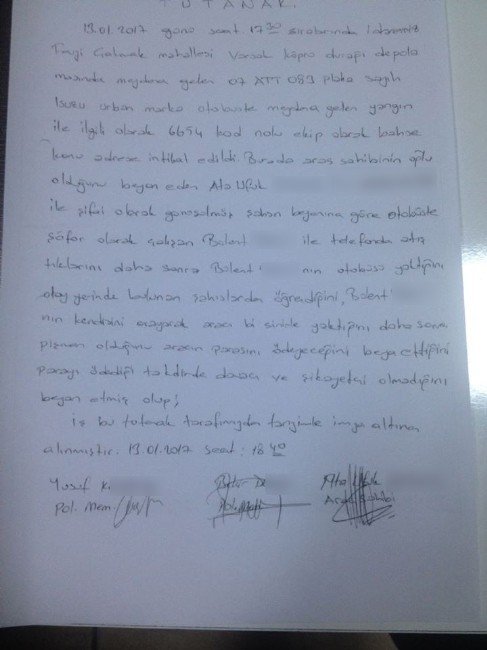 TUTANAK
13.01.2017 günü saat 17 30 sıralarında idaremiz
mahallesi Varsak köprü durağı depola
masında meydana gelen 07 ATT 083 plaka sayılı
Isuzu urban marka otobüste meydana gelen yangın
ile ilgili olarak 6654 kod nolu ekip olarak bahse
konu adrese intikal edildi. Burada araç sahibinin oğlu
olduğunu beyan eden Ata Ufuk
ile şifai olarak şahsın beyanına göre otobüste
şöför olarak çalışan Bülent ile telefonda atış
tıklarını daha sonra Bülent nın otobüsü yaktığını
olay yerinde bulunan şahıslardan öğrendiğini, Bülent
nın kendisini arayarak aracı bi sinirle yaktığını daha sonra
pişman olduğunu aracın parasını ödeyeceğini beya ettiğini
parayı ödediği takdirde davacı ve şikayetçi olmadığını
beyan etmiş olup;
iş bu tutanak tarafımızda tanzimle imza altına
alınmıştır. 13.01.2017 saat: 18 40
Yusuf K.
Pol. Mem.
Pol. Mem. Araç Sahibi